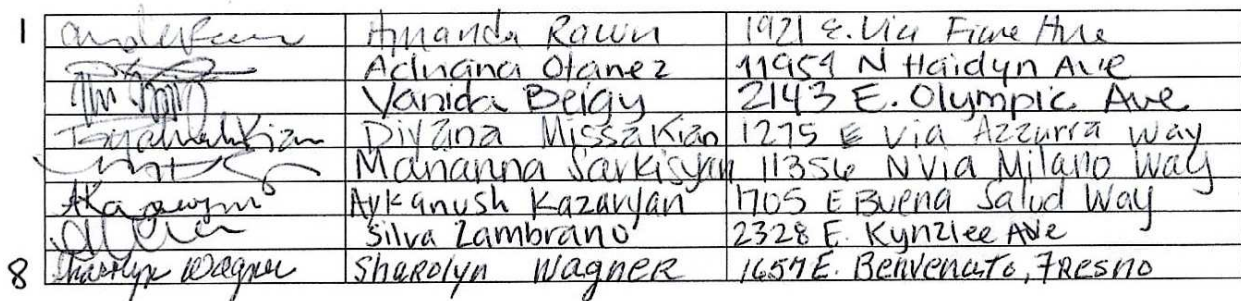 1 Amanda Rawn 1921 E. Via Fiore Ave
Adriana Otanez 11954 N Haidyn Ave
Vanida Beigy 2143 E. Olympic Ave
Diyana Missakian 1275 E Via Azzurra Way
Mananna Sarkisyan 11356 N Via Milano Way
AKazaryan Aykanush Kazaryan 1705 E Buena Salud Way
Silva Zambrano 2328 E. Kynzlee Ave
8 Sharolyn Wagner Sharolyn Wagner 1657 E. Benvenuto, Fresno